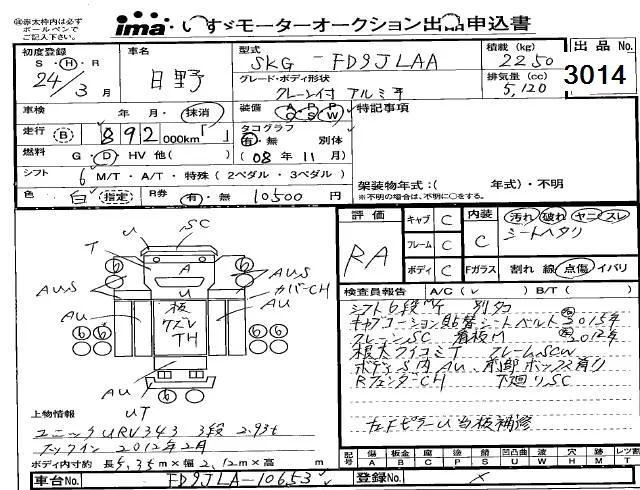 ㊟赤太枠内は必ず
ボールペンで
ご記入下さい。
ima いすゞモーターオークション出品申込書
初度登録 車名 型式 積載 (kg) 出品 No.
S・H・R 日野 SKG - FD9JLAA 2250
24年3月 グレード・ボディ形状 排気量 (cc) 3014
クレーン付 アルミ平 5,120
車検 年・月・抹消 装備 A P P C S W 特記事項
走行 B 892 000km「 」 タコグラフ
有・無 別体
燃料 G・D・HV 他( ) (08年11月)
シフト 6 M/T・A/T・特殊 (2ペダル・3ペダル) 架装物年式:( 年式)・不明
色 白 指定 R券 有・無 10500円 ※不明の場合は、不明に○をする。
U SC
T A AUS
U カバーCH
AUS 板 AU
AU ワレ
TH
AU
UT
評価 キャブ C 内装 汚れ 破れ ヤニ スレ
RA フレーム C C シートヘタリ
ボディ C Fガラス 割れ 線 点傷 イバリ
検査員報告 A/C( ✓ ) B/T( )
シフト6段MT 別タコ
キャブコーション貼替 シートベルト 2015年
クレーンSC 看板M 2012年
板大ワイユミT フレームSCW
ボディS内AU 前部ボックス有り
RフェンダーCH 下廻りSC
左FピラーU当板補修
上物情報
ユニックURV343 3段 2.93t
フックイン 2012年2月
ボディ内寸約 長5,35m×幅2,12m×高 m
記号 傷 板金 座 塗 錆 凹凸曲 波 穴 跡 レツ割
A B C P S U W H M T
車台No. FD9JLA-10653 登録No. ×